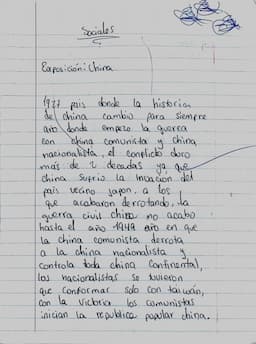 Sociales
Exposición: China
1927 pais donde la historia
de china cambio para siempre
año donde empezo la guerra
con china comunista y china
nacionalista, el conflicto duro
más de 2 decadas ya que
china sufrio la invacion del
pais vecino japon. a los
que acabaron derrotando, la
guerra civil china no acabo
hasta el año 1949 año en que
la china comunista derrota
a la china nacionalista y
controla toda china continental,
los nacionalistas se tuvieron
que conformar solo con taiwán,
con la victoria los comunistas
inician la republica popular china.